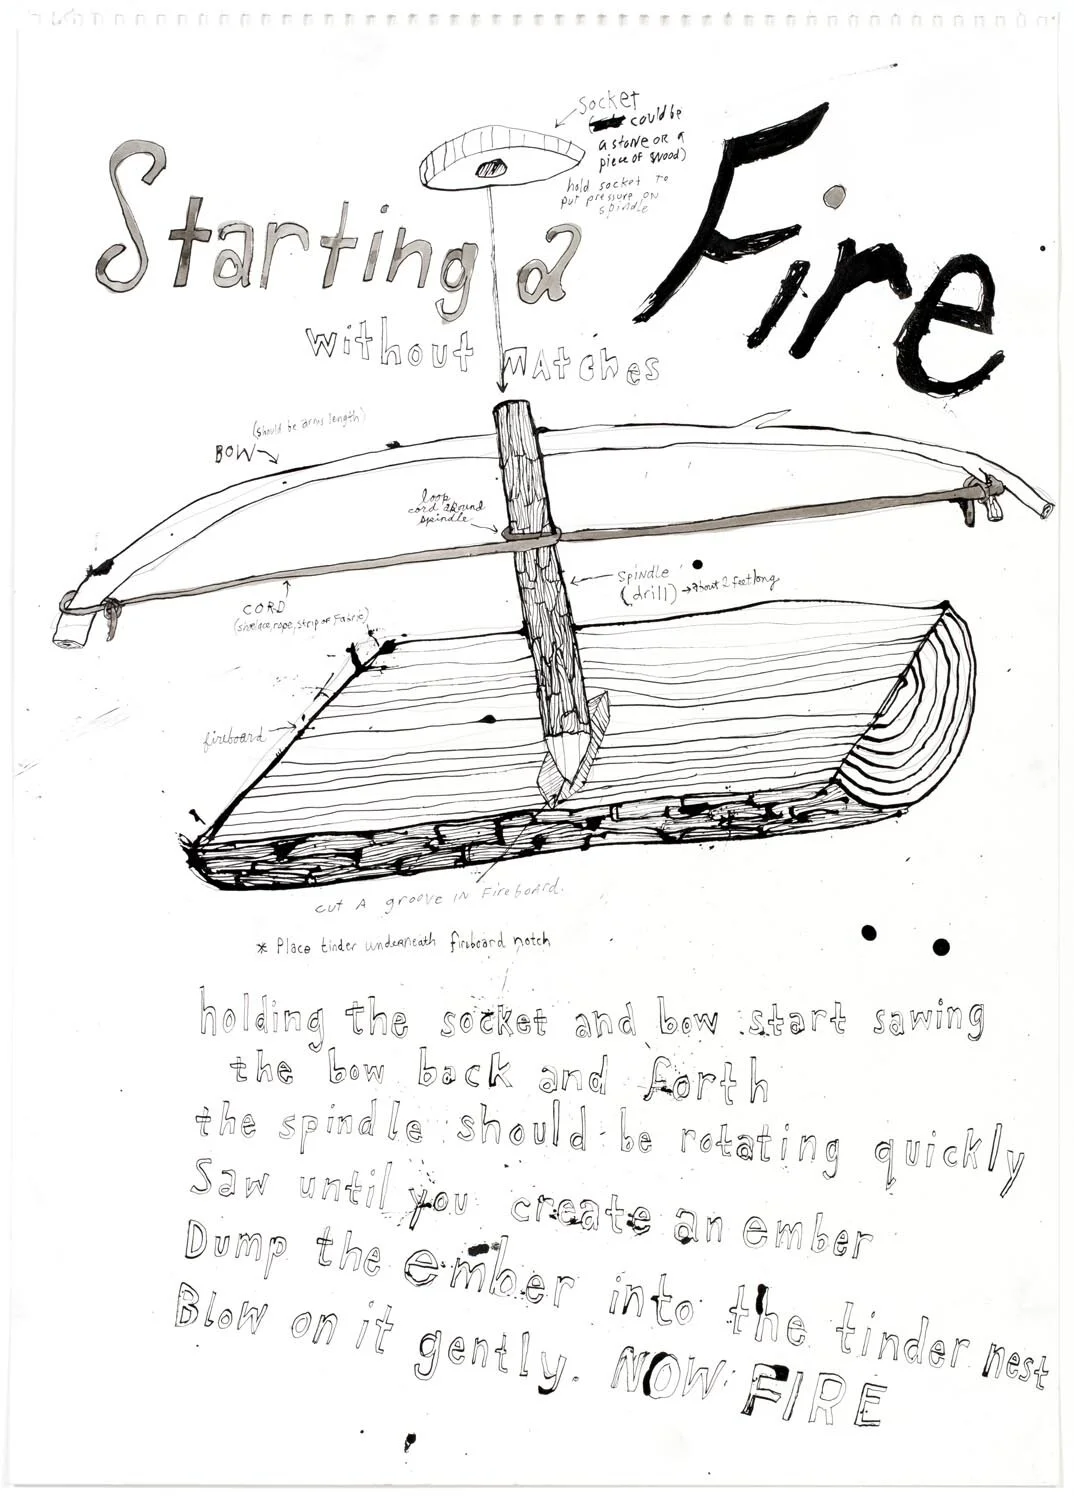 Socket
(could be
a stone OR a
piece of wood)
hold socket to
put pressure on
spindle
Starting a Fire
without matches
(should be arms length)
BOW
loop
cord around
spindle
spindle
(drill) → about 2 feet long
CORD
(shoelace, rope, strip of Fabric)
fireboard
cut A groove in Fireboard.
* Place tinder underneath fireboard notch
holding the socket and bow start sawing
the bow back and forth
the spindle should be rotating quickly
Saw until you create an ember
Dump the ember into the tinder nest
Blow on it gently. NOW FIRE